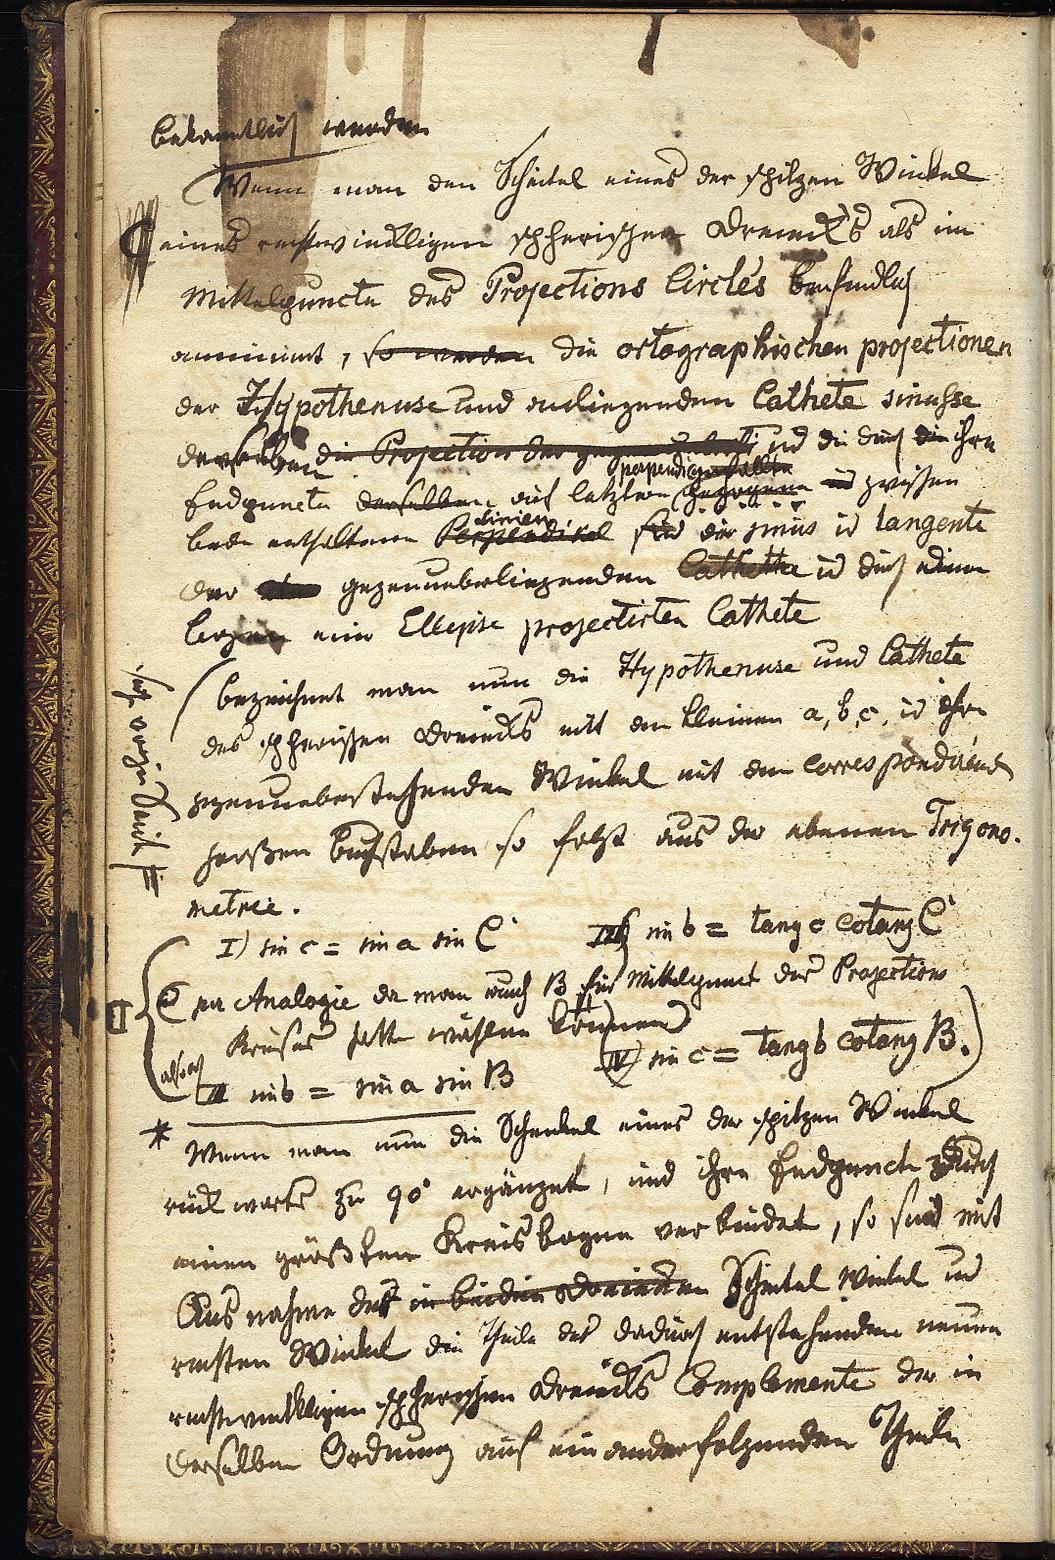 bekanntlich werden
Wenn man den Scheitel eines der spitzen Winkel
eines rechtwinkligen spherischen Dreiecks als im
Mittelpuncte des Projections Circles befindlich
annimmt, so werden die ortographischen projectionen
der Hypothenuse und anliegenden Cathete sinusse
derselben die Projection der und die durch die ihre
perpendic gefällte
Endpuncte derselben auf letztern gezogene und zwischen
Linien
beide enthaltenen Perpendikel sind die sinus u tangente
der gegenueberliegenden Cathete u durch einen
eine Ellepse projectirten Cathete
bezeichnet man nun die Hypothenuse und Cathete
des spherischen Dreiecks mit den kleinen a, b, c, u ihre
gegenueberstehenden Winkel mit den correspondirend
großen Buchstaben so folgt aus der ebenen Trigono-
metrie.
I) sin c = sin a sin C
III) sin b = tang c cotang C
per Analogie da man auch B für Mittelpunct des Projections
Kreises hätte wählen können
also auch
II sin b = sin a sin B
IV) sin c = tang b cotang B.
II
* Wenn man nun die Schenkel eines der spitzen Winkel
rückwärts zu 90° ergänzet, und ihre Endpuncte durch
einen größten Kreisbogen verbindet, so sind mit
Ausnahme der in beiden Dreiecken Scheitel Winkel und
rechten Winkel die Theile des dadurch entstehenden neuen
rechtwinkligen spherischen Dreiecks Complemente der in
derselben Ordnung auf einander folgenden Theile